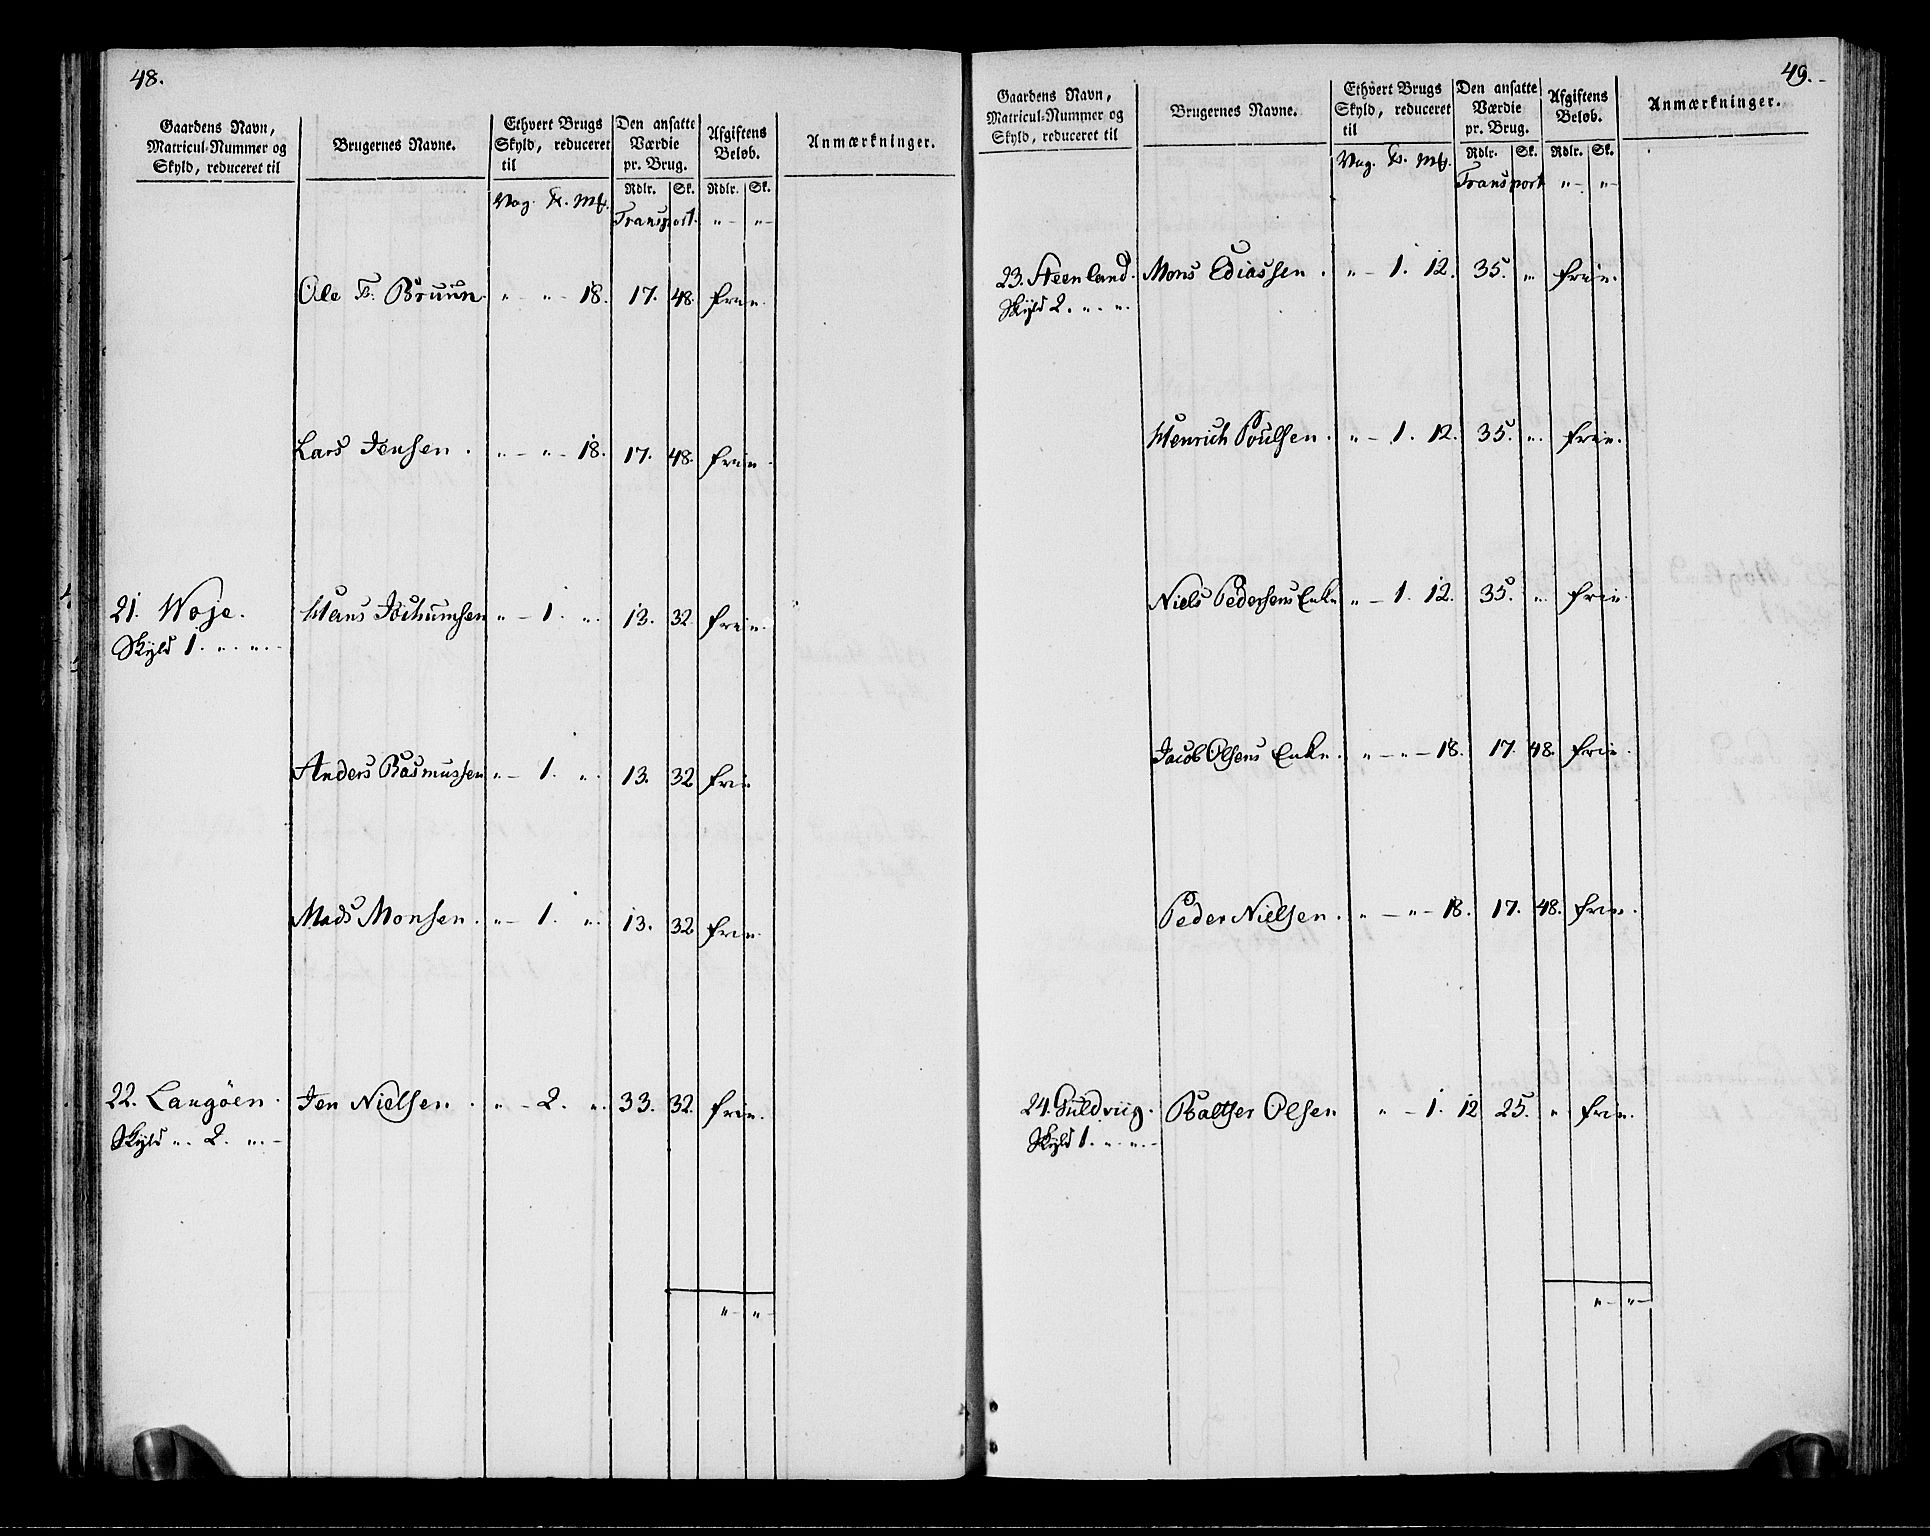 48.
Gaardens Navn, Matricul-Nummer og Skyld, reduceret til
Brugernes Navne.
Ethvert Brugs Skyld, reduceret til
Den ansatte Værdie pr. Brug.
Afgiftens Beløb.
Anmærkninger.
Vog. Mk.
Rdlr. Sk. Rdlr. Sk.
Transport. " — " —
Ole Bruun. " — " — 18. 17. 48. frie.
Lars Jensen. " — " — 18. 17. 48. frie.
21. Woje. Hans Jochumsen " — 1. ". 13. 32. frie.
Skyld 1. " . " . —
Anders Rasmussen " — 1. ". 13. 32 frie
Mads Monsen. " — 1. ". 13. 32 frie.
22. Langöen. Jen Nielsen. " — 2. ". 33. 32. frie.
Skyld ". 2. ". —
" — " —
49. —
Gaardens Navn, Matricul-Nummer og Skyld, reduceret til
Brugernes Navne.
Ethvert Brugs Skyld, reduceret til
Den ansatte Værdie pr. Brug.
Afgiftens Beløb.
Anmærkninger.
Vog. Mk.
Rdlr. Sk. Rdlr. Sk.
Transport " — " —
23. Steenland. Mons Ediassen. " — 1. 12. 35. " frie.
Skyld 2. " . " .
Henrich Poulsen. " — 1. 12. 35. ". frie.
Niels Pedersens Enke " — 1. 12. 35. ". frie
Jacob Olsens Enke. " — " — 18. 17. 48. frie.
Peder Nielsen. " — " — 18. 17. 48. frie.
24. Guldviig. Baltser Olsen " — 1. 12 25. " frie.
Skyld 1. " . " . —
" — " —